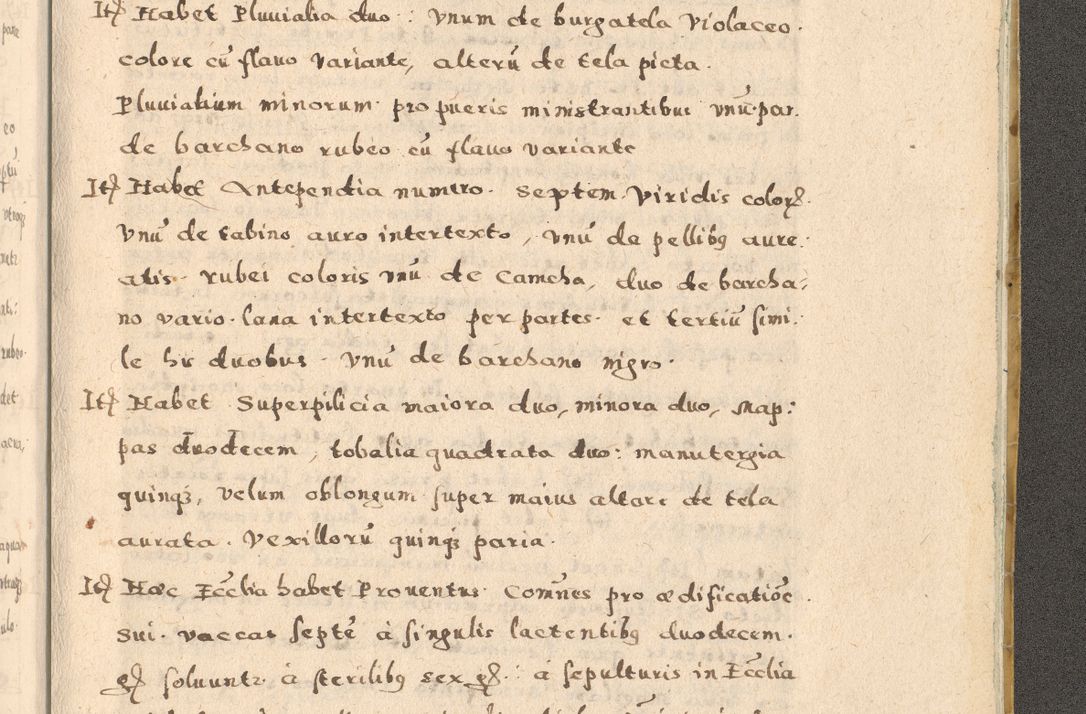 Itē Habet Pluuialia duo : Vnum de burgatela Violaceo.
colore cū flauo variante, alterū de tela picta.
Pluuialium minorum pro pueris ministrantibus vnū par.
de barchano rubeo cū flauo variante
Itē Habet Antependia numero. Septem. Viridis colorē.
Vnū de tabino auro intertexto, vnū de pellibꝫ aure.
atis. rubei coloris vnū de Camcha, duo de barcha,
no vario. lana intertexto per partes. et tertiū simi.
le his duobus. Vnū de barchano nigro.
Itē Habet Superpilicia maiora duo, minora duo, Map:
pas duodecem, tobalia quadrata duo: manutergia
quinqꝫ, velum oblongum super maius altare de tela
aurata. Vexillorū quinqꝫ paria.
Itē Hæc Ecclīa habet Prouentus Comūnes pro ædificatiōe
sui. vaccas septē à singulis lactentibꝫ duodecem.
gꝝ soluuntꝛ à sterilibꝫ sex gꝝ. à sepulturis in Ecclīa